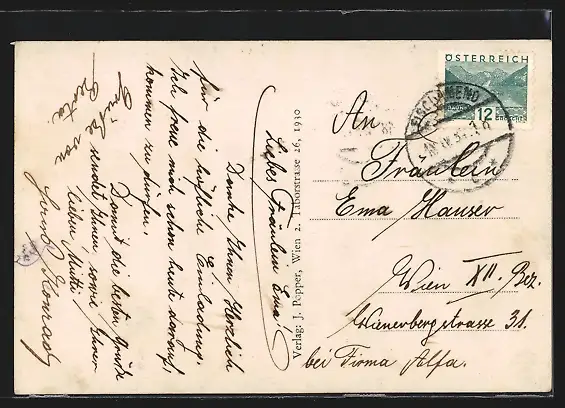 Liebes Fräulein Ema!
Danke Ihnen Herzlich
für die höfliche Einladung.
Ich freue mich schon heute darauf,
kommen zu dürfen.
Damit die besten Grüße
sendet Ihnen, sowie Ihrer
lieben Mutti
Konrad
Grüße von
ÖSTERREICH
12
GROSCHEN
FISCHAMEND
An
Fräulein
Ema Hauser
Wien XII. Bez.
Wienerbergstrasse 31.
bei Firma Alfa.
Verlag: J. Popper, Wien 2. Taborstrasse 26. 1930